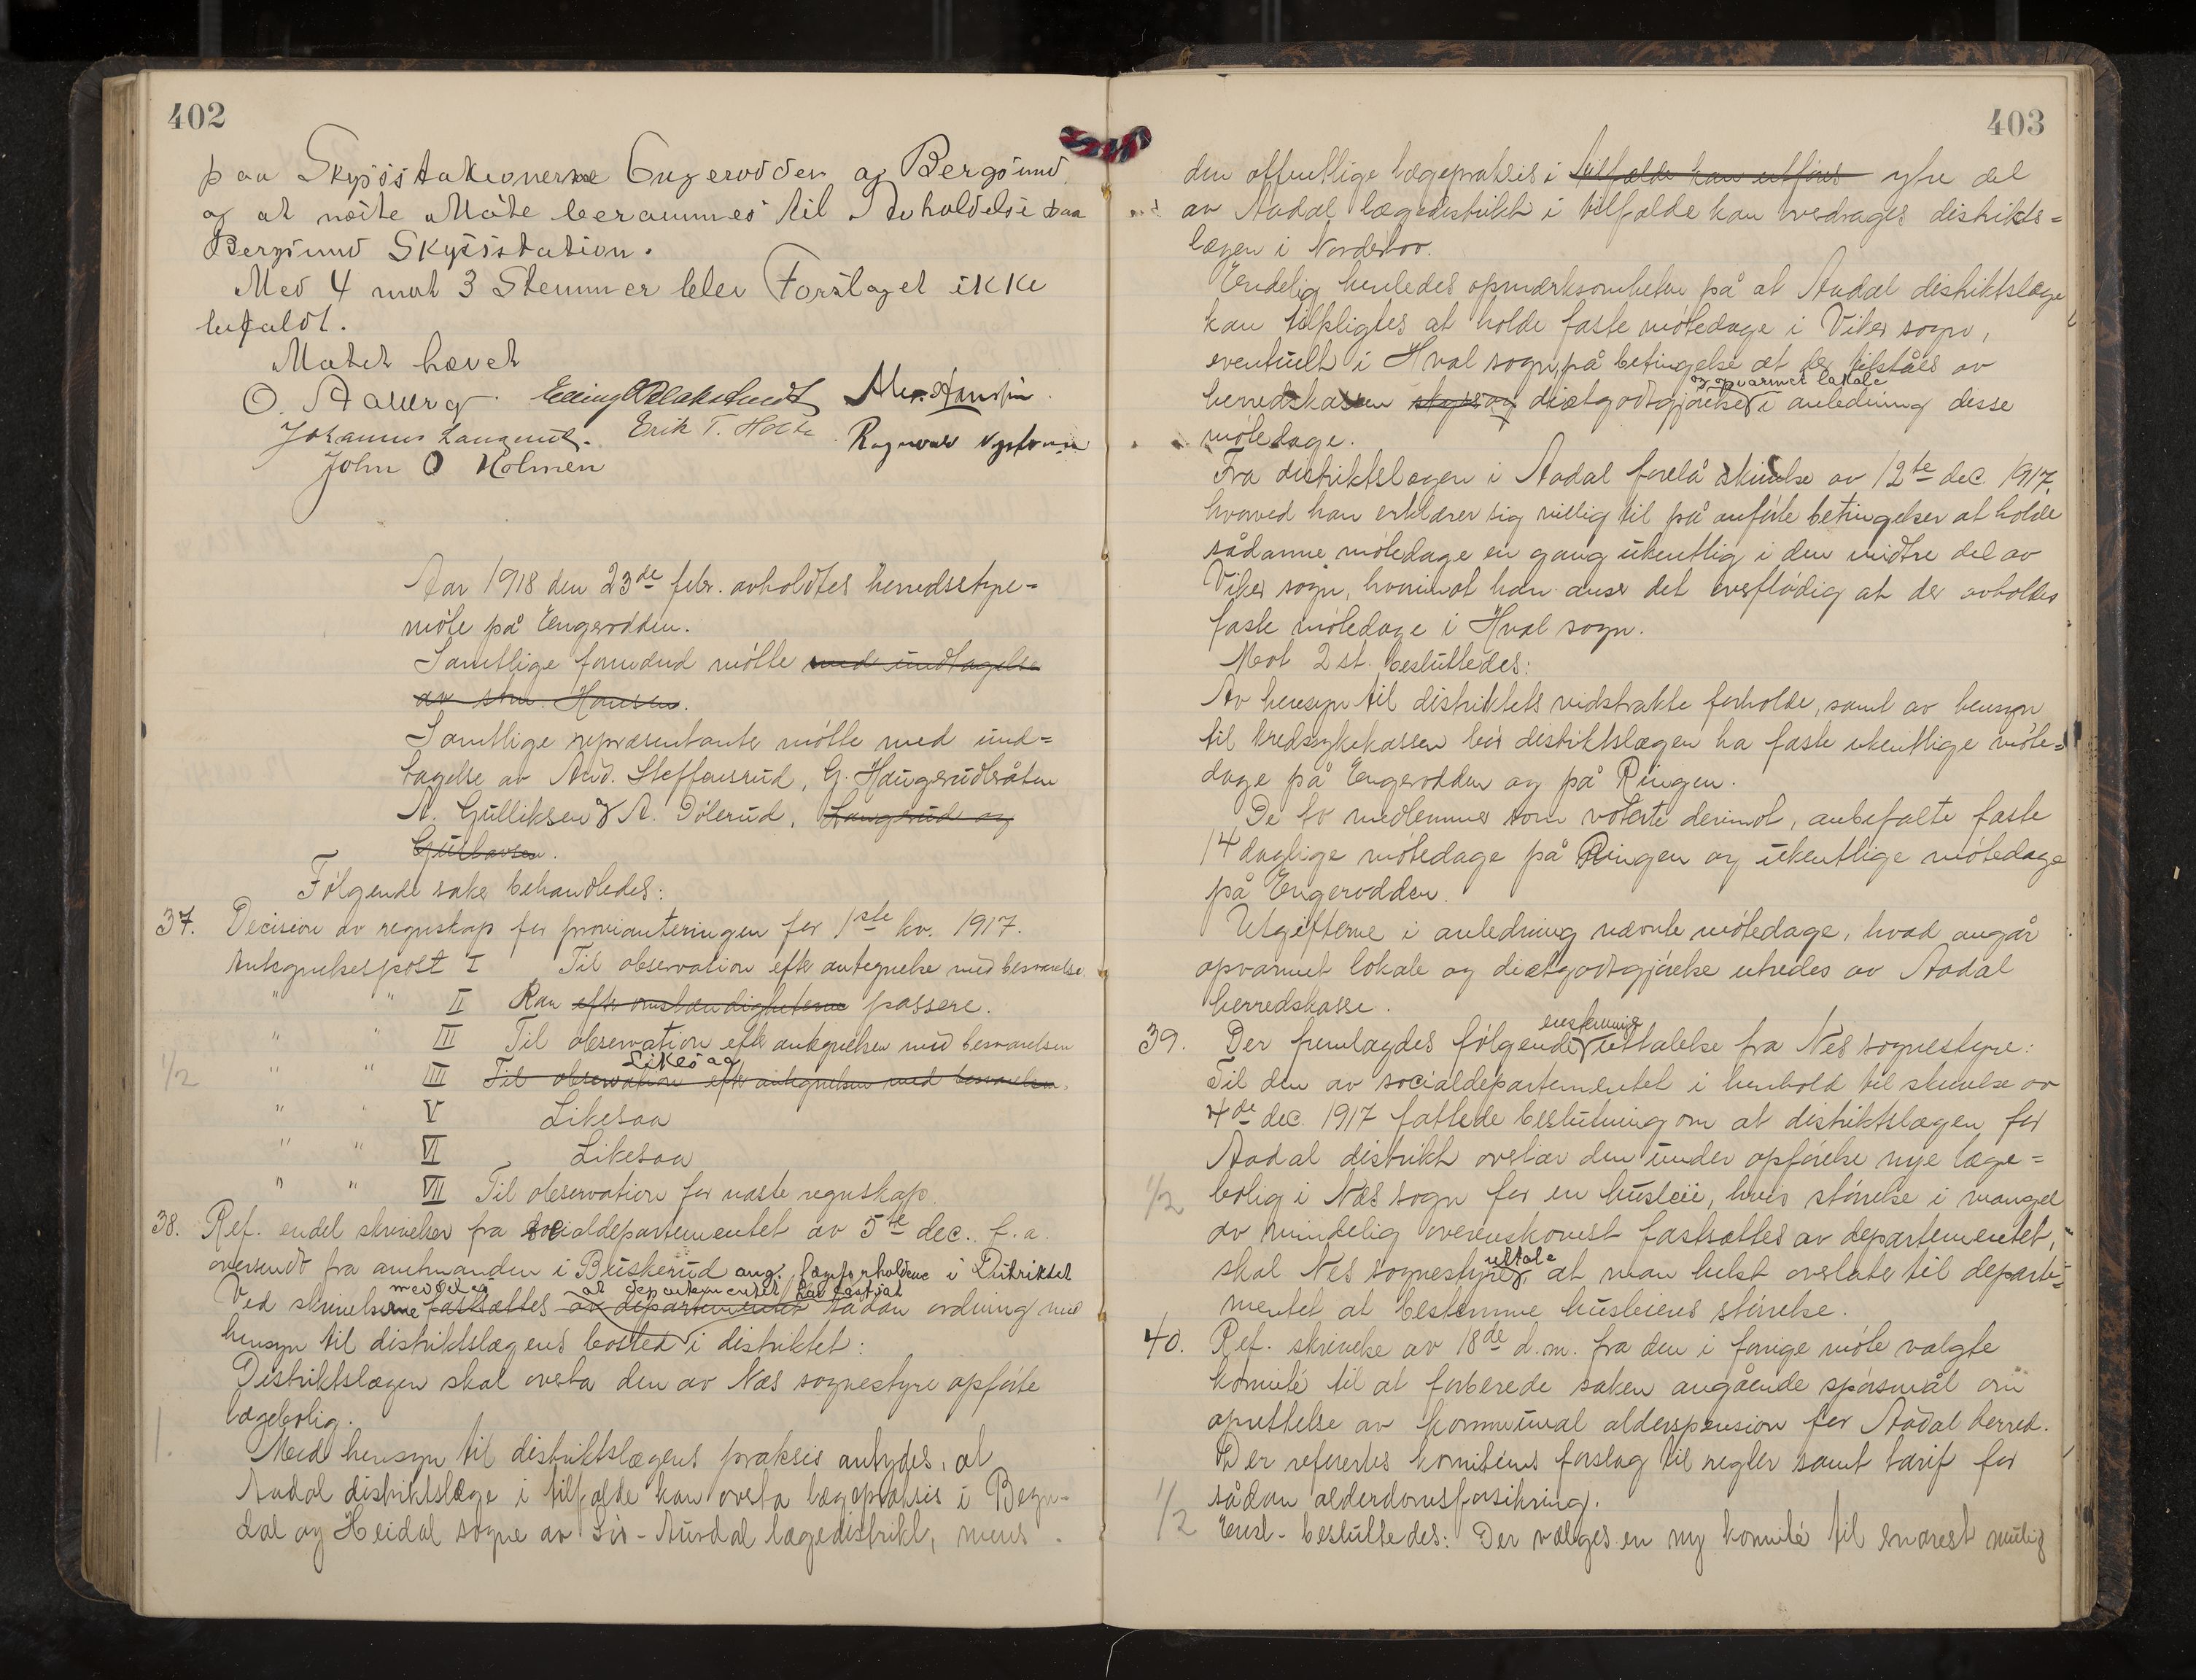 402
paa Skysstationerne Engerodden og Bergsund
og at næste Møte berammes til Avholdelse paa
Bergsund Skysstation.
Med 4 mot 3 Stemmer blev Forslaget ikke
bifaldt.
Møtet hævet
O. Aaberg. Alex. Hansen.
Johannes Erik T. Holte Ragnvald
John O Holmen
Aar 1918 den 23de febr. avholdtes herredsstyre-
møte på Engerodden.
Samtlige formænd møtte med undtagelse
av Hansen.
Samtlige repræsentanter møtte med und-
tagelse av And. Steffensrud, G. Haugerudbråten
A. Gulliksen & A. Dølerud, Langerud og
Gustavsen.
Følgende saker behandledes:
37. Decision av regnskap for provianteringen for 1ste kv. 1917.
Antegnelsespost I Til observation efter antegnelse med besvarelse.
" " II Kan efter omstændigheterne passere.
" " III Til observation efter antegnelsen med besvarelsen
Likesaa
1/2 " " IIII Til observation efter antegnelsen med besvarelsen.
" " V Likesaa
" " VI Likesaa
" " VII Til observation for næste regnskap.
38. Ref. endel skrivelser fra socialdepartementet av 5te dec. f.a.
oversendt fra amtmanden i Buskerud ang. lægeforholdene i Distriktet
meddeles at departementet har fastsat
Ved skrivelserne fastsættes av departementet sådan ordning med
hensyn til distriktslægens bosted i distriktet:
Distriktslægen skal overta den av Næs sognestyre opførte
lægebolig.
1. Med hensyn til distriktslægens praksis antydes, at
Aadal distriktslæge i tilfælde kan overta lægepraksis i Begn-
dal og Heidal sogne av Sør-Aurdal lægedistrikt, mens
403
den offentlige lægepraksis i tilfælde kan utføres ytre del
av Aadal lægedistrikt i tilfælde kan overdrages distrikts-
lægen i Norderhov.
Endelig henledes opmærksomheten på at Aadal distriktslæge
kan tilpligtes at holde faste møtedage i Viker sogn,
eventuelt i Hval sogn, på betingelse at der tilståes av
og opvarmet lokale
herredskassen skyss og diætgodtgjørelse i anledning disse
møtedage.
Fra distriktslægen i Aadal forelå skrivelse av 12te dec. 1917,
hvorved han erklærer sig villig til på anførte betingelser at holde
sådanne møtedage en gang ukentlig i den midtre del av
Viker sogn, hvorimot han anser det overflødig at der avholdes
faste møtedage i Hval sogn.
Mot 2 st. besluttedes:
Av hensyn til distriktets vidstrakte forholde, samt av hensyn
til kredssykekassen bør distriktslægen ha faste ukentlige møte-
dage på Engerodden og på Ringen.
De to medlemmer som voterte derimot, anbefalte faste
14 daglige møtedage på Ringen og ukentlige møtedage
på Engerodden.
Utgifterne i anledning nævnte møtedage, hvad angår
opvarmet lokale og diætgodtgjørelse utredes av Aadal
herredskasse.
enstemmige
39. Der fremlagdes følgende uttalelse fra Nes sognestyre:
Til den av socialdepartementet i henhold til skrivelse av
4de dec. 1917 fattede beslutning om at distriktslægen for
Aadal distrikt overtar den under opførelse nye læge-
1/2 bolig i Næs sogn for en husleie, hvis størrelse i mangel
av mindelig overenskomst fastsættes av departementet,
uttale
skal Nes sognestyre at man helst overlater til departe-
mentet at bestemme husleiens størrelse.
40. Ref. skrivelse av 18de d.m. fra den i forrige møte valgte
komité til at forberede saken angående spørsmål om
oprettelse av kommunal alderspension for Aadal herred.
Der refereres komitéens forslag til regler samt tarif for
1/2 sådan alderdomsforsikring.
Enst. besluttedes: Der vælges en ny komité til snarest mulig